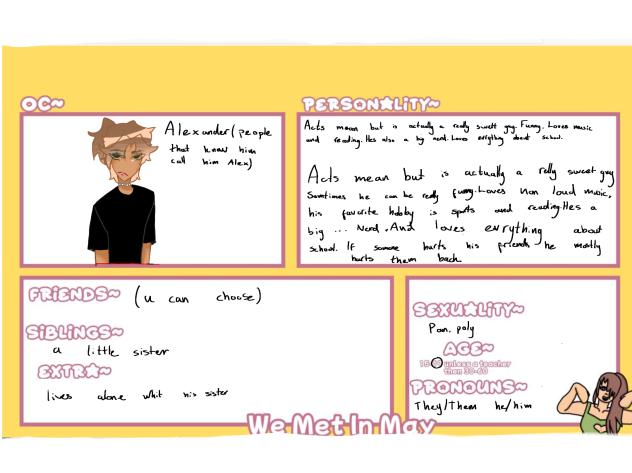 OC~
Alexander (people
that know him
call him Alex)
PERSONALITY~
Acts mean but is actually a really swett guy. Funny. Loves music
and reading. Hes also a big nerd. Loves enrything about school.
Acts mean but is actually a relly sweet guy
Sometimes he can be really funny. Loves non loud music,
his favorite hobby is spots and reading. Hes a
big ... Nerd. And loves enrything about
school. If someone hurts his friends he mostly
hurts them back
FRIENDS~ (u can choose)
SIBLINGS~
a little sister
EXTRA~
lives alone whit his sister
SEXUALITY~
Pan, poly
AGE~
15 unless a teacher
then 30-60
PRONOUNS~
They/Them he/him
We Met In May